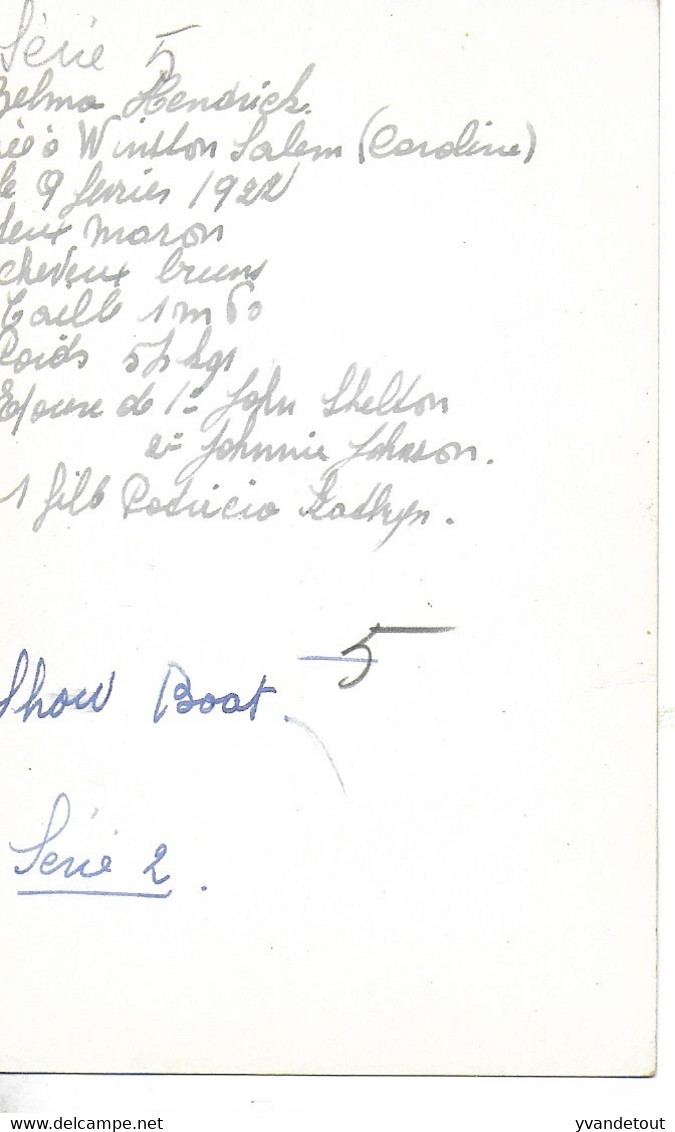 Série 5
Zelma Hendrick.
née à Winston Salem (Caroline)
le 9 février 1922
yeux maron
cheveux bruns
Taille 1m60
Poids 54 kgs
Epouse de 1- John Shelton
2- Johnnie Johnson.
1 fille Patricia Kathryn.
5
Show Boat.
Série 2.
yvandetout